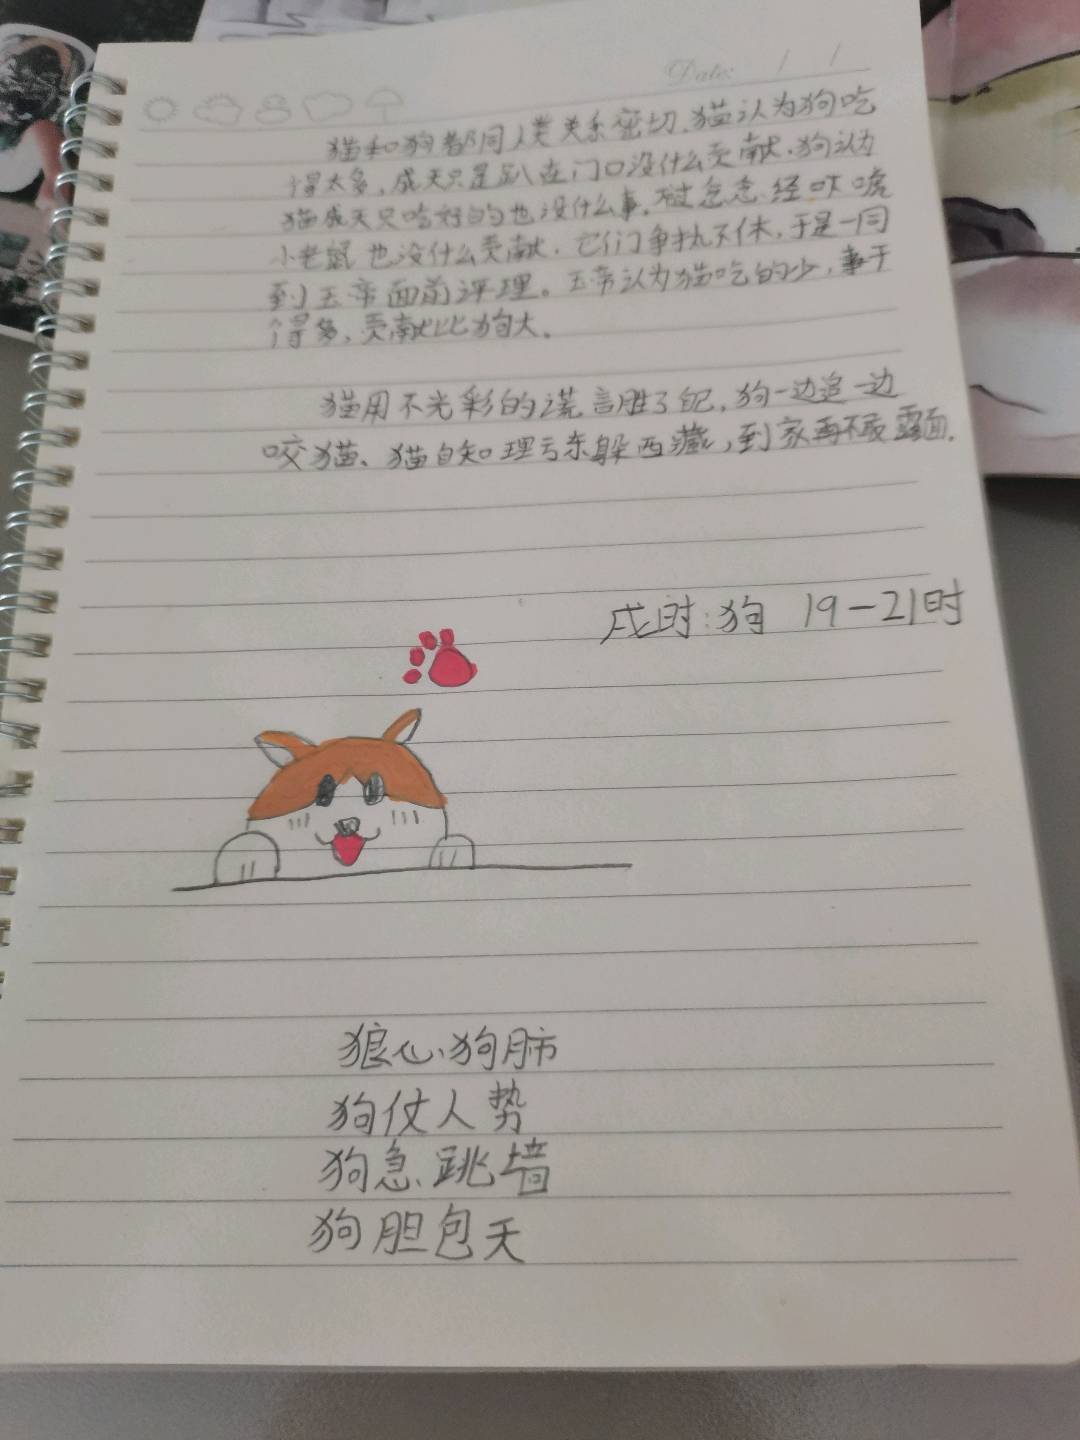 Date: / /
猫和狗都同人类关系密切.猫认为狗吃
得太多,成天只是趴在门口没什么贡献.狗认为
猫成天只吃好的也没什么事.不过念念经吓唬
小老鼠也没什么贡献.它们争执不休,于是一同
到玉帝面前评理。玉帝认为猫吃的少,事干
得多,贡献比狗大.
猫用不光彩的谎言胜了,狗一边追一边
咬猫、猫自知理亏东躲西藏,到家再不敢露面.
戌时:狗 19-21时
狼心狗肺
狗仗人势
狗急跳墙
狗胆包天